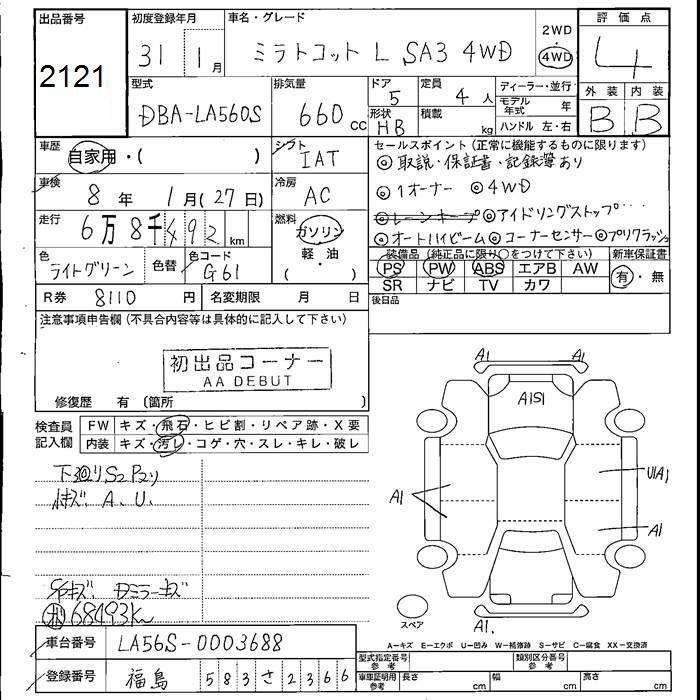 出品番号 2121
初度登録年月 31 1月
車名・グレード ミラトコット L SA3 4WD
2WD 4WD
評価点 4
外装 内装
B B
型式 DBA-LA560S
排気量 660 cc
ドア 5 形状 HB
定員 4 人 積載 kg
ディーラー・並行
モデル年式 年
ハンドル 左・右
車歴 自家用・( )
シフト IAT
セールスポイント (正常に機能するものに限ります)
◎取説・保証書・記録簿あり
◎1オーナー ◎4WD
◎レーンキープ ◎アイドリングストップ
◎オートハイビーム ◎コーナーセンサー ◎プリクラッシュ
車検 8年 1月(27日)
冷房 AC
走行 6万8千492 km
燃料 ガソリン 軽・油 ( )
色 ライトグリーン 色替 色コード G61
装備品 (純正品に限り○をつけて下さい)
PS PW ABS エアB AW
SR ナビ TV カワ
新車保証書 有・無
R券 8110 円 名変期限 月 日
後日品
注意事項申告欄 (不具合内容等は具体的に記入して下さい)
初出品コーナー
AA DEBUT
修復歴 有 (箇所 )
検査員記入欄
FW キズ・飛石・ヒビ割・リペア跡・X要
内装 キズ・汚レ・コゲ・穴・スレ・キレ・破レ
下廻りS2 P2り
小キズ A、U、
Dミラーキズ
68493K
A1 A1
A1S1
A1 U1A1
A1
スペア A1.
A-キズ E-エクボ U-凹み W-補修跡 S-サビ C-腐食 XX-交換済
車台番号 LA56S-0003688
登録番号 福島 583さ2366
型式指定番号 参考 類別区分番号 参考
車車証明用 参考 長さ cm 幅 cm 高さ cm